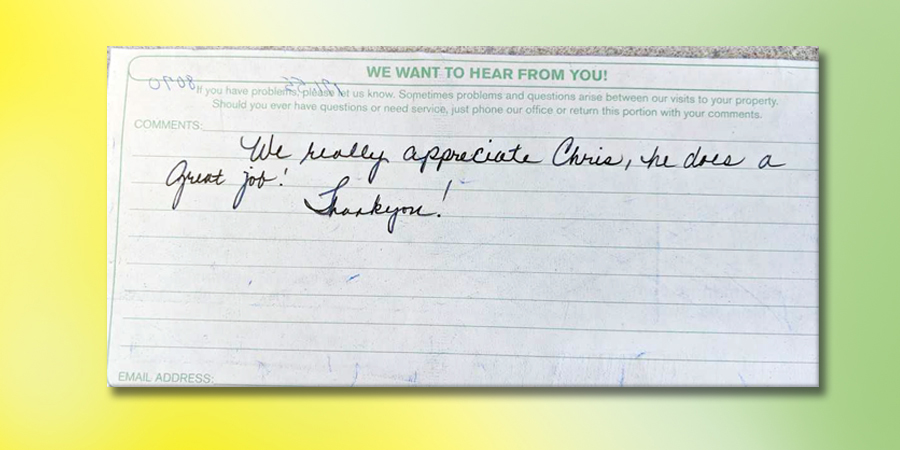 WE WANT TO HEAR FROM YOU!
If you have problems, please let us know. Sometimes problems and questions arise between our visits to your property.
Should you ever have questions or need service, just phone our office or return this portion with your comments.
COMMENTS:
We really appreciate Chris, he does a
Great job!
Thankyou!
EMAIL ADDRESS: